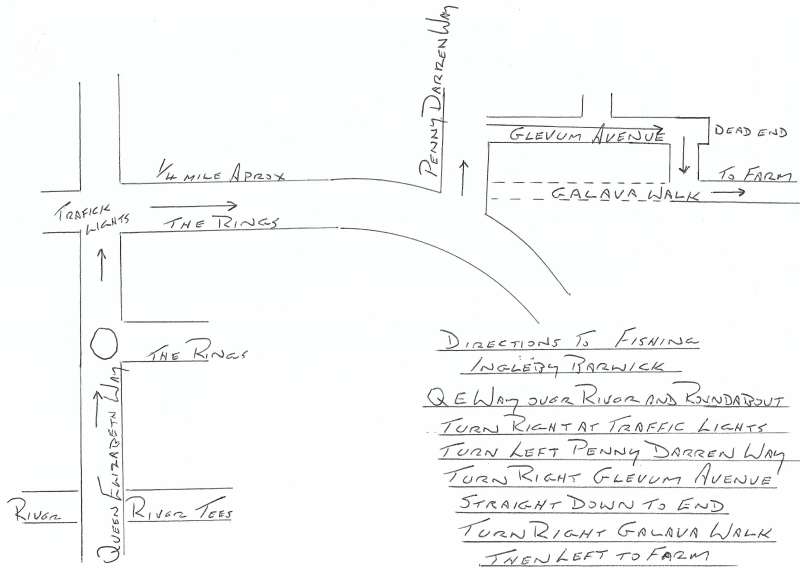 PENNY DARREN WAY
GLEVUM AVENUE
DEAD END
1/4 MILE APROX
TO FARM
GALAVA WALK
TRAFICK
LIGHTS
THE RINGS
THE RINGS
QUEEN ELIZABETH WAY
RIVER
RIVER TEES
DIRECTIONS TO FISHING
INGLEBY BARWICK
Q E WAY OVER RIVER AND ROUNDABOUT
TURN RIGHT AT TRAFFIC LIGHTS
TURN LEFT PENNY DARREN WAY
TURN RIGHT GLEVUM AVENUE
STRAIGHT DOWN TO END
TURN RIGHT GALAVA WALK
THEN LEFT TO FARM